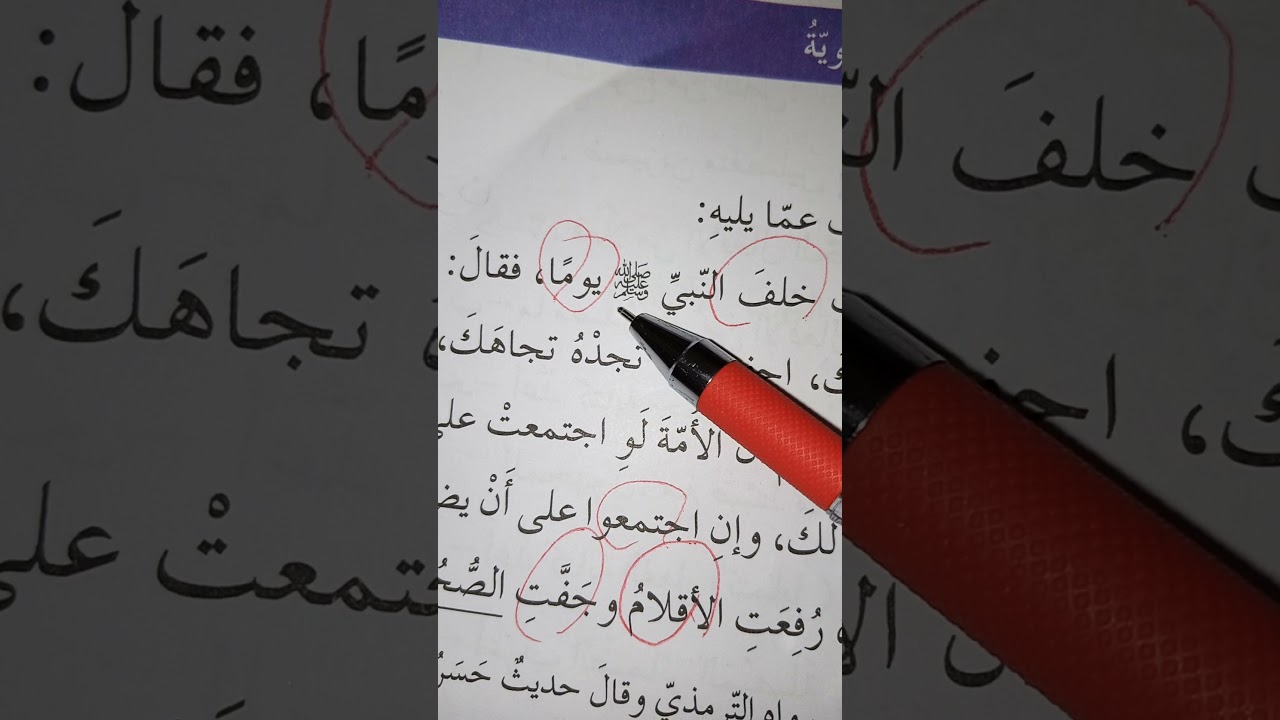 عمّا يليهِ:
خلفَ النّبيِّ ﷺ يومًا، فقالَ:
تجدْهُ تجاهَكَ،
الأُمّةَ لَوِ اجتمعتْ على
لكَ، وإنِ اجتمعوا على أَنْ يض
رُفِعَتِ الأقلامُ وجَفَّتِ الصُّحُ
التّرمذيّ وقالَ حديثٌ حَسَنٌ